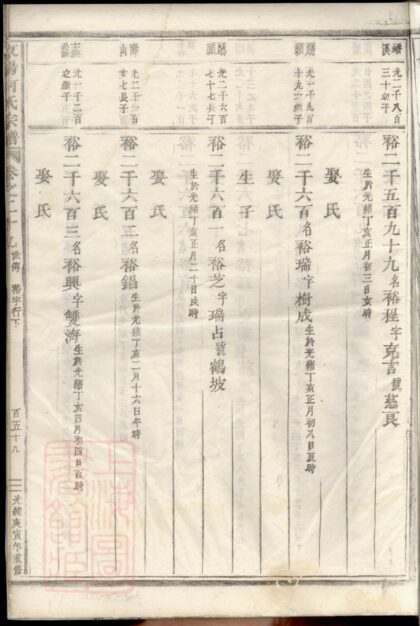 光二千八百三十初子
裕二千五百九十九名裕程字克言號慈良
生於光緒丁亥正月初三日亥時
娶氏
光一千九百十九之繼子
裕二千六百名裕瑞字樹成生於光緒丁亥正月初八日辰時
娶氏
生子
光二千六百七十七長子
裕二千六百一名裕芝字瑞占號鶴坡
生於光緒丁亥正月二十日辰時
娶氏
光二千二百廿七長子
裕二千六百二名裕錩生於光緒丁亥二月十六日午時
娶氏
光一千二百之繼子
裕二千六百三名裕興字雙海生於光緒丁亥四月初四日酉時
娶氏
何氏宗譜
卷之二十九
世傳
裕字行下
百五十九
光緒庚寅年重修